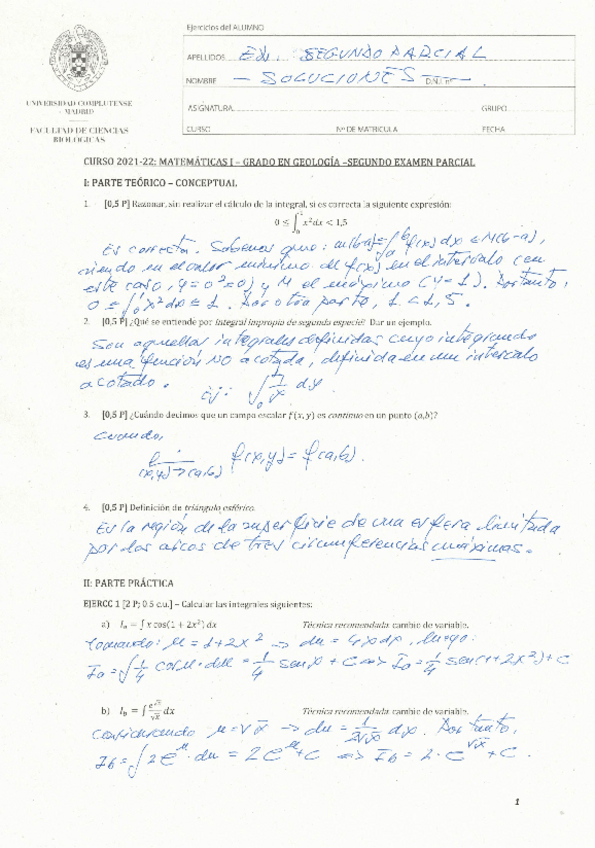 Ejercicios del ALUMNO
APELLIDOS EX. SEGUNDO PARCIAL
NOMBRE — SOLUCIONES — D.N.I. nº
ASIGNATURA GRUPO
CURSO Nº DE MATRICULA FECHA
UNIVERSIDAD COMPLUTENSE
MADRID
FACULTAD DE CIENCIAS
BIOLOGICAS
CURSO 2021-22: MATEMÁTICAS I – GRADO EN GEOLOGÍA –SEGUNDO EXAMEN PARCIAL
I: PARTE TEÓRICO – CONCEPTUAL
1. [0,5 P] Razonar, sin realizar el cálculo de la integral, si es correcta la siguiente expresión:
0 ≤ ∫₀¹ x²dx < 1,5
Es correcta. Sabemos que: m(b-a) ≤ ∫ₐᵇ f(x) dx ≤ M(b-a),
siendo m el valor mínimo de f(x) en el intervalo (en
este caso, y = 0² = 0) y M el máximo (y = 1). Por tanto,
0 ≤ ∫₀¹ x² dx ≤ 1. Por otra parte, 1 < 1,5.
2. [0,5 P] ¿Qué se entiende por integral impropia de segunda especie? Dar un ejemplo.
Son aquellas integrales definidas cuyo integrando
es una función NO acotada, definida en un intervalo
acotado. ej: ∫₀¹ 1/x dx
3. [0,5 P] ¿Cuándo decimos que un campo escalar f(x, y) es continuo en un punto (a, b)?
Cuando,
(x,y)→(a,b) f(x,y) = f(a,b).
4. [0,5 P] Definición de triángulo esférico.
Es la región de la superficie de una esfera limitada
por los arcos de tres circunferencias máximas.
II: PARTE PRÁCTICA
EJERCC 1 [2 P; 0.5 c.u.] – Calcular las integrales siguientes:
a) Iₐ = ∫ x cos(1 + 2x²) dx Técnica recomendada: cambio de variable.
Tomando: μ = 1+2x² → du = 4x dx, luego:
Iₐ = ∫ 1/4 cos μ · du = 1/4 sen μ + C ⇒ Iₐ = 1/4 sen(1+2x²) + C
b) I_b = ∫ e^√x/√x dx Técnica recomendada: cambio de variable.
Considerando μ = √x → du = 1/2√x dx. Por tanto,
I_b = ∫ 2e^μ · du = 2e^μ + C ⇒ I_b = 2 · e^√x + C.
1